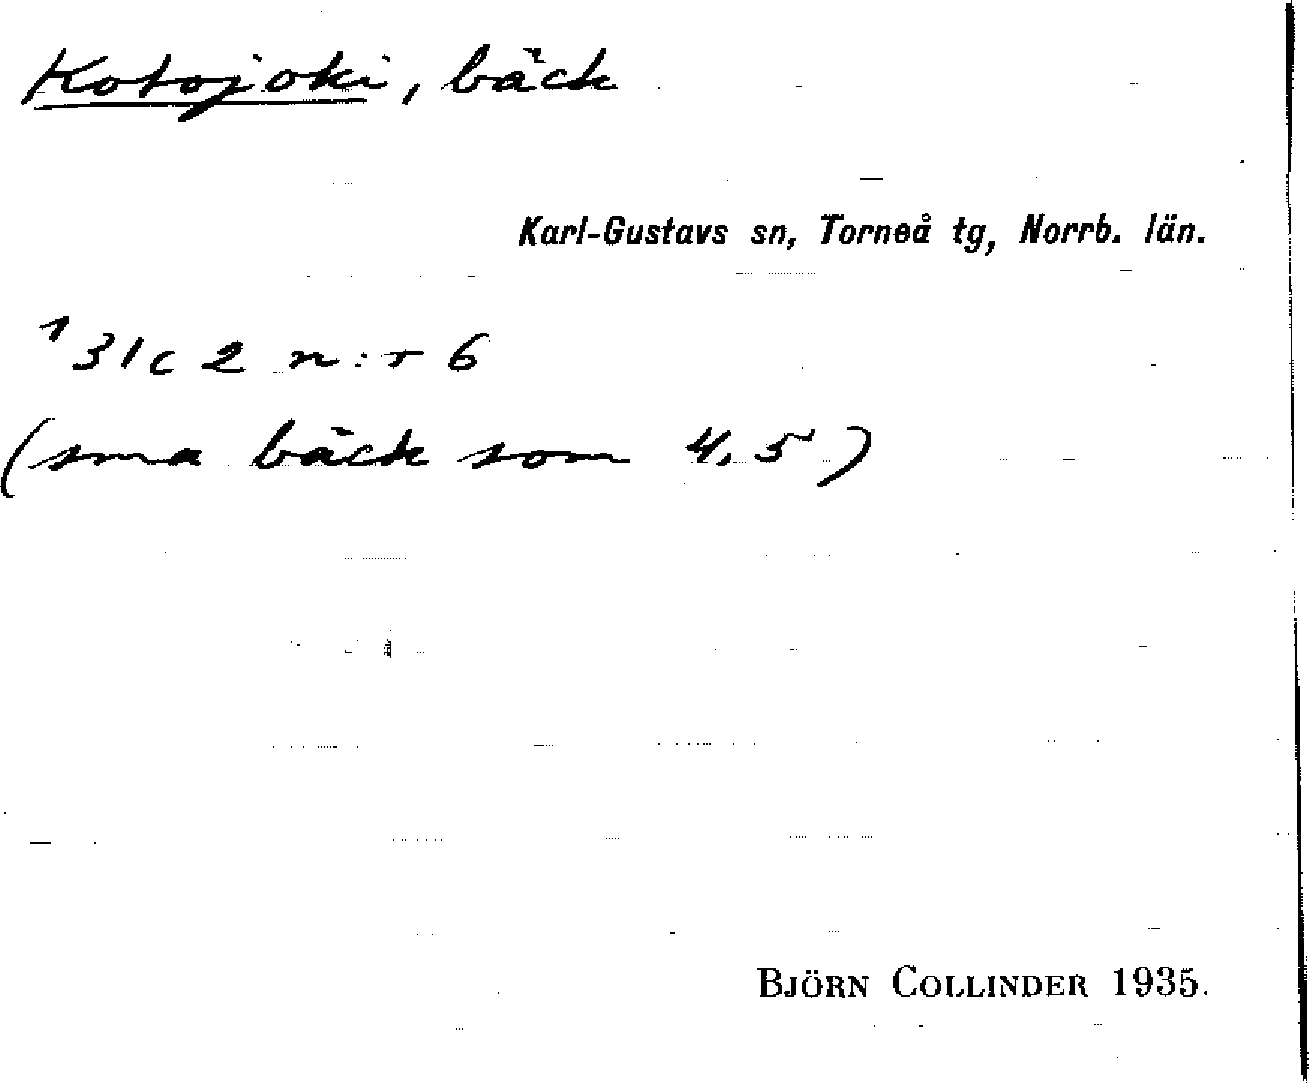 Kotojoki, bäck
Karl-Gustavs sn, Torneå tg, Norrb. län.
¹31c 2 n:r 6
(sma bäck som 4.5)
BJÖRN COLLINDER 1935.